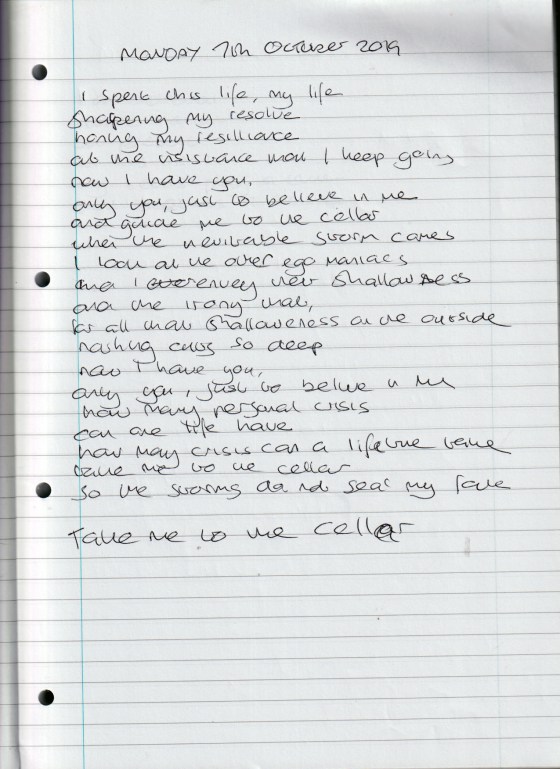 MONDAY 7th OCTOBER 2019
I spent this life, my life
sharpening my resolve
honing my resilliance
at the resistance that I keep going
now I have you,
only you, just to believe in me
and guide me to the cellar
when the inevitable storm comes
I look at the other ego maniacs
and I envey their shallowness
and the irony that,
for all that shalloweness on the outside
nothing cuts so deep
now I have you,
only you, just to belive in me
how many personal crisis
can one life have
how may crisis can a lifetime
take me to the cellar
so the storms do not seal my fate
Take me to the cellar